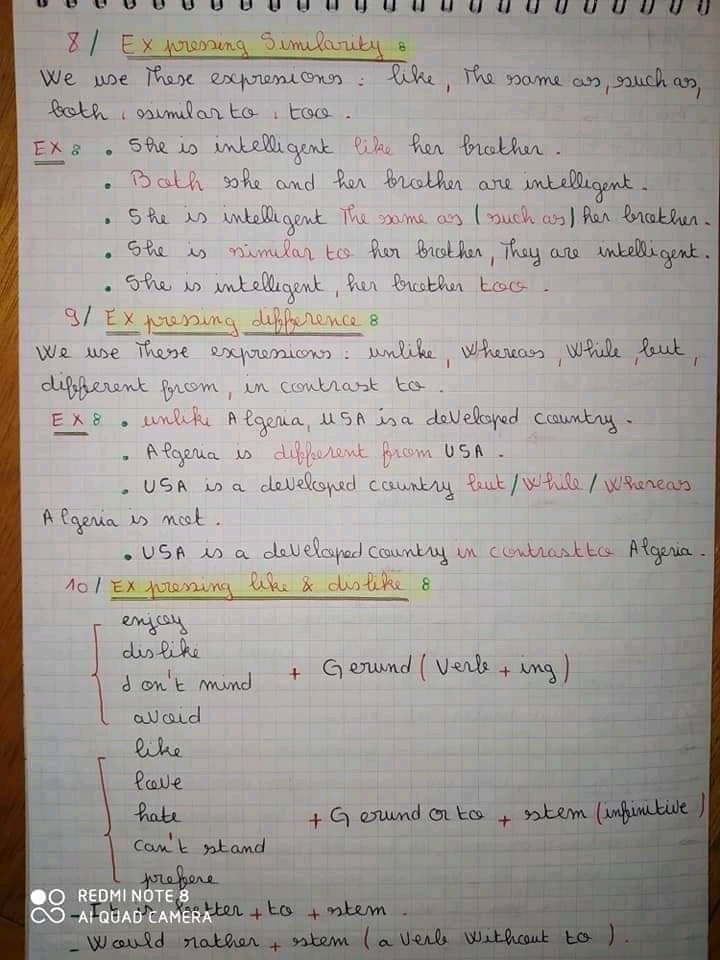 8/ Expressing Similarity :
We use These expressions : like, The same as, such as,
both, similar to, too.
EX : • She is intelligent like her brother.
• Both she and her brother are intelligent.
• She is intelligent The same as (such as) her brother.
• She is similar to her brother, They are intelligent.
• She is intelligent, her brother too.
9/ Expressing difference :
We use These expressions : unlike, Whereas, While, but,
different from, in contrast to.
EX : • unlike Algeria, USA is a developed country.
• Algeria is different from USA.
• USA is a developed country but / While / Whereas
Algeria is not.
• USA is a developed country in contrast to Algeria.
10/ Expressing like & dislike :
enjoy
dislike
don't mind
avoid
+ Gerund (Verb + ing)
like
love
hate
can't stand
prefere
+ Gerund or to + stem (infinitive)
- better + to + stem.
- Would rather + stem (a Verb Without to).
REDMI NOTE 8
AI QUAD CAMERA